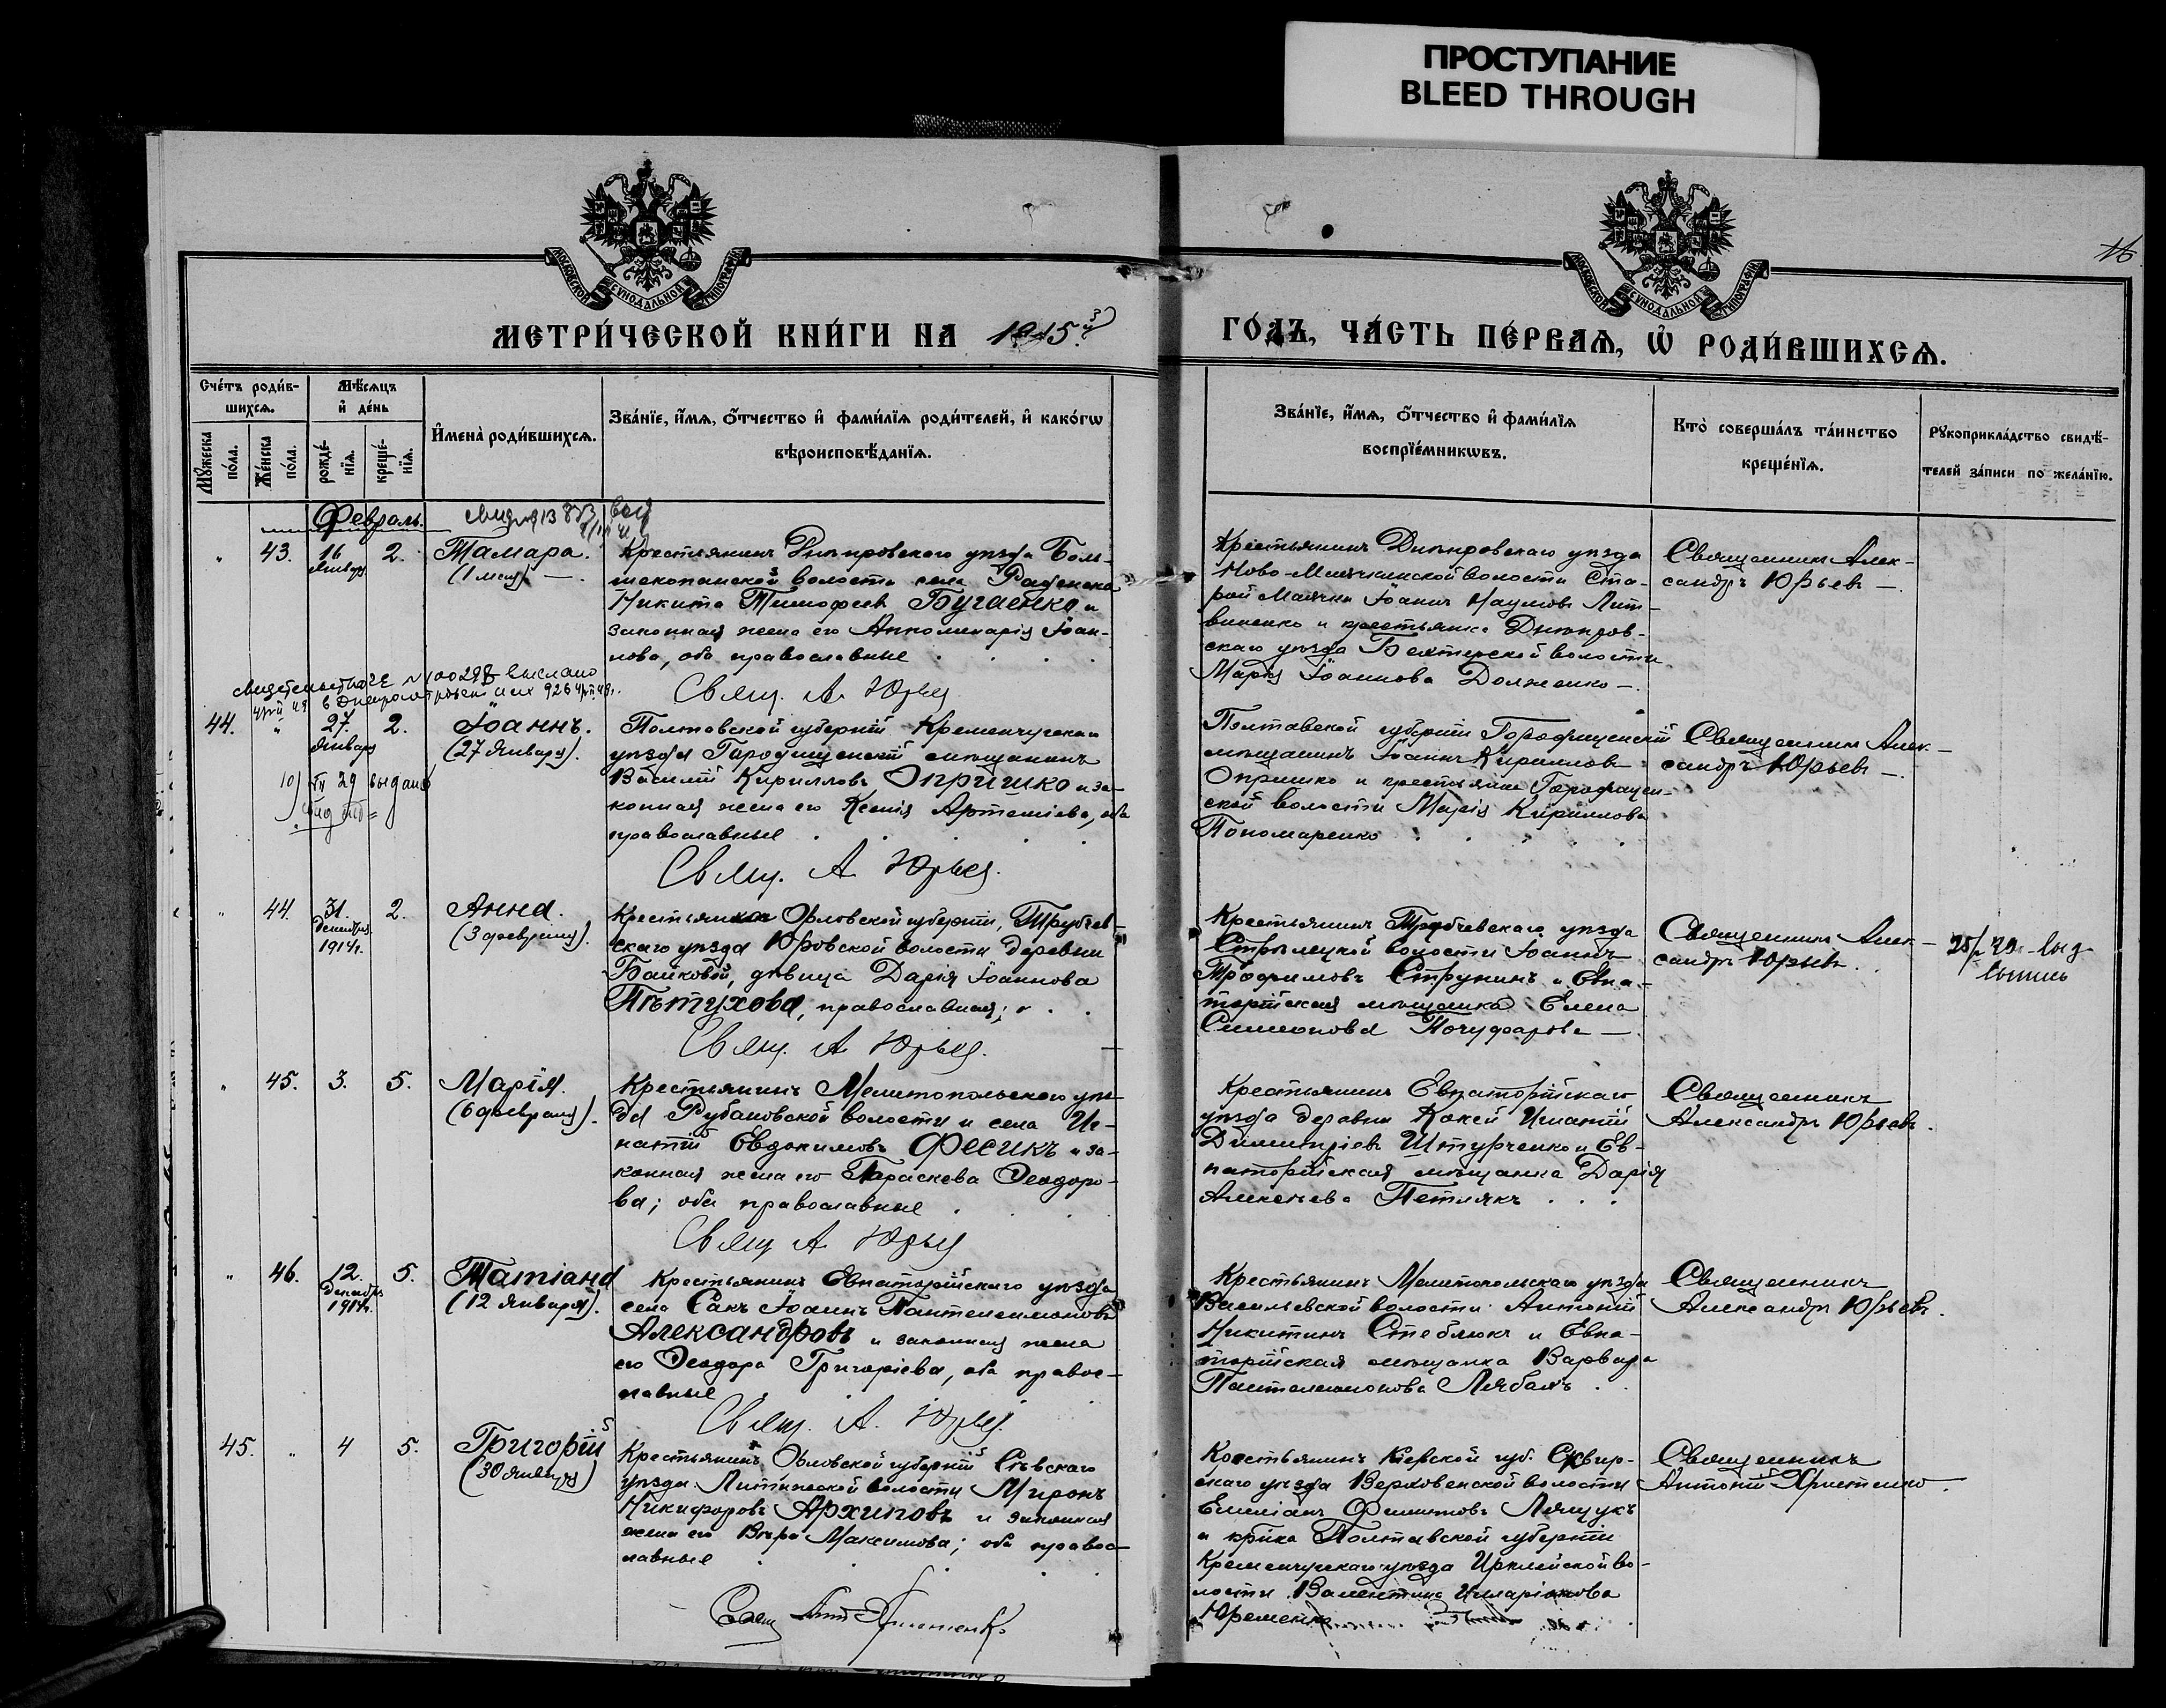 ПРОСТУПАНИЕ
BLEED THROUGH
МОСКОВСКОЙ СѴНОДАЛЬНОЙ ТИПОГРАФІИ
МОСКОВСКОЙ СѴНОДАЛЬНОЙ ТИПОГРАФІИ
16
МЕТРИ́ЧЕСКОЙ КНИ́ГИ НА 1915й
ГО́ДЪ, ЧА́СТЬ ПЕ́РВАѦ, Ѡ҆ РОДИ́ВШИХСѦ.
Сче́тъ роди́в-
шихсѧ.
Мѣ́сѧцъ
и҆ де́нь
Мꙋ́жеска по́ла.
Же́нска по́ла.
рожде́-
нїѧ.
креще́-
нїѧ.
И҆мена̀ роди́вшихсѧ.
Зва́нїе, и҆́мѧ, ѻ҆́тчество и҆ фами́лїѧ роди́телей, и҆ како́гѡ
вѣроисповѣ́данїѧ.
Зва́нїе, и҆́мѧ, ѻ҆́тчество и҆ фами́лїѧ
воспрїе́мникѡвъ.
Кто̀ соверша́лъ та́инство
креще́нїѧ.
Рꙋкоприкла́дство свидѣ́-
телей за́писи по жела́нїю.
Февраль.
43. 16 января 2. Тамара.
(1 мая) —.
Крестьянинъ Днѣпровскаго уѣзда Боль-
шекопанской волости села Раденска
Никита Тимофеев Бугаенко и
законная жена его Апполинарія Іоан-
нова, оба православные
Свящ. А. Юрьев
Крестьянинъ Днѣпровскаго уѣзда
Ново-Маячкинской волости Ста-
рой Маячки Іоаннъ Наумовъ Лит-
виненко и крестьянка Днѣпров-
скаго уѣзда Бехтерской волости
Марія Іоаннова Долженко —.
Священникъ Алек-
сандръ Юрьевъ —.
44. 27. января 2. Іоаннъ.
(27 января).
Полтавской губерніи Кременчугскаго
уѣзда Городищенскій мѣщанинъ
Василій Кирилловъ Опришко и за-
конная жена его Ксенія Артеміева, оба
православные
Свящ. А Юрьев.
Полтавской губерніи Городищенскій
мѣщанинъ Іоаннъ Кирилловъ
Опришко и крестьянка Городищен-
ской волости Марія Кириллова
Пономаренко
Священникъ Алек-
сандръ Юрьевъ —.
44. 31. декабря 1914г. 2. Анна.
(3 февраля).
Крестьянка Орловской губерніи, Трубчев-
скаго уѣзда Юровской волости деревни
Байковой, дѣвица Дарія Іоаннова
Пѣтухова, православная;
Свящ. А Юрьев.
Крестьянинъ Трубчевскаго уѣзда
Стрѣлецкой волости Іоаннъ
Трофимовъ Струнинъ и Евпа-
торійская мѣщанка Елена
Симеонова
Священникъ Алек-
сандръ Юрьевъ.
45. 3. 5. Марія.
(6 февраля).
Крестьянинъ Мелитопольскаго уѣз-
да Рубановской волости и села Иг-
натій Евдокимовъ Фесикъ и за-
конная жена его Параскева Ѳеодоро-
ва; оба православные
Свящ А. Юрьев
Крестьянинъ Евпаторійскаго
уѣзда деревни Игнатій
Димитріевъ Штурченко и Ев-
паторійская мѣщанка Дарія
Алексѣева Петлякъ
Священникъ
Александръ Юрьевъ.
46. 12. декабря 1914г. 5. Татіана
(12 января).
Крестьянинъ Евпаторійскаго уѣзда
села Сакъ Іоаннъ Пантелеимоновъ
Александровъ и законная жена
его Ѳеодора Григоріева, оба правос-
лавные
Свящ. А. Юрьев.
Крестьянинъ Мелитопольскаго уѣзда
Васильевской волости Антоній
Никитинъ Стеблюкъ и Евпа-
торійская мѣщанка Варвара
Пантелеимонова
Священникъ
Александръ Юрьевъ.
45. 4 5. Григорій
(30 января)
Крестьянинъ Орловской губерніи Сѣвскаго
уѣзда волости Миронъ
Никифоровъ Архиповъ и законная
жена его Вѣра Максимова; оба правос-
лавные
Крестьянинъ Кіевской губ. Сквир-
скаго уѣзда Верховенской волости
Емиліанъ Лящукъ
и кр-нка Полтавской губерніи
Кременчугскаго уѣзда Ирклійской во-
лости Валентина Иларіонова
Яременко
Священникъ
Антоній Христенко.